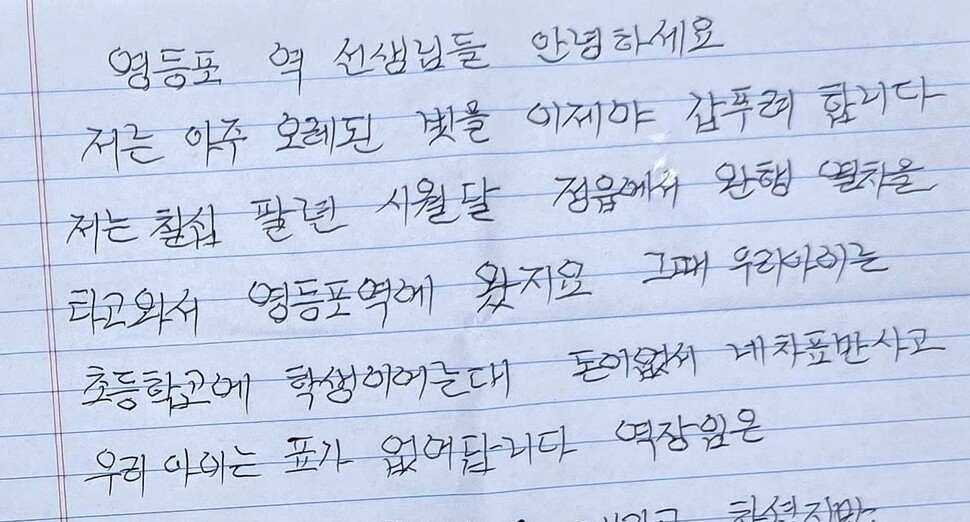 영등포 역 선생님들 안녕하세요
저는 아주 오레된 빚을 이제야 갑푸려 합니다
저는 칠십 팔련 시월달 정읍에서 완행 열차을
타고와서 영등포역에 왔지요 그때 우리아이는
초등학교에 학생이어는대 돈이없서 네차표만사고
우리 아이는 표가 없어답니다 역장임은